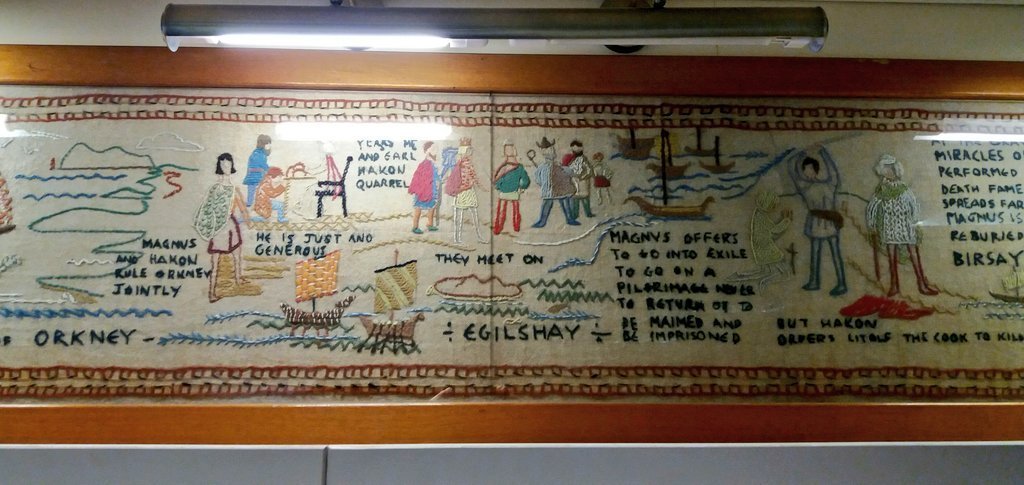 MAGNUS
AND HAKON
RULE ORKNEY
JOINTLY
ORKNEY -
HE IS JUST AND
GENEROUS
YEARS HE
AND EARL
HAKON
QUARREL
THEY MEET ON
÷ EGILSHAY ÷
MAGNUS OFFERS
TO GO INTO EXILE
TO GO ON A
PILGRIMAGE NEVER
TO RETURN OR TO
BE MAIMED AND
BE IMPRISONED
BUT HAKON
ORDERS LIFOLF THE COOK TO KILL
MIRACLES
PERFORMED
DEATH FAME
SPREADS FAR
MAGNUS IS
REBURIED
BIRSAY